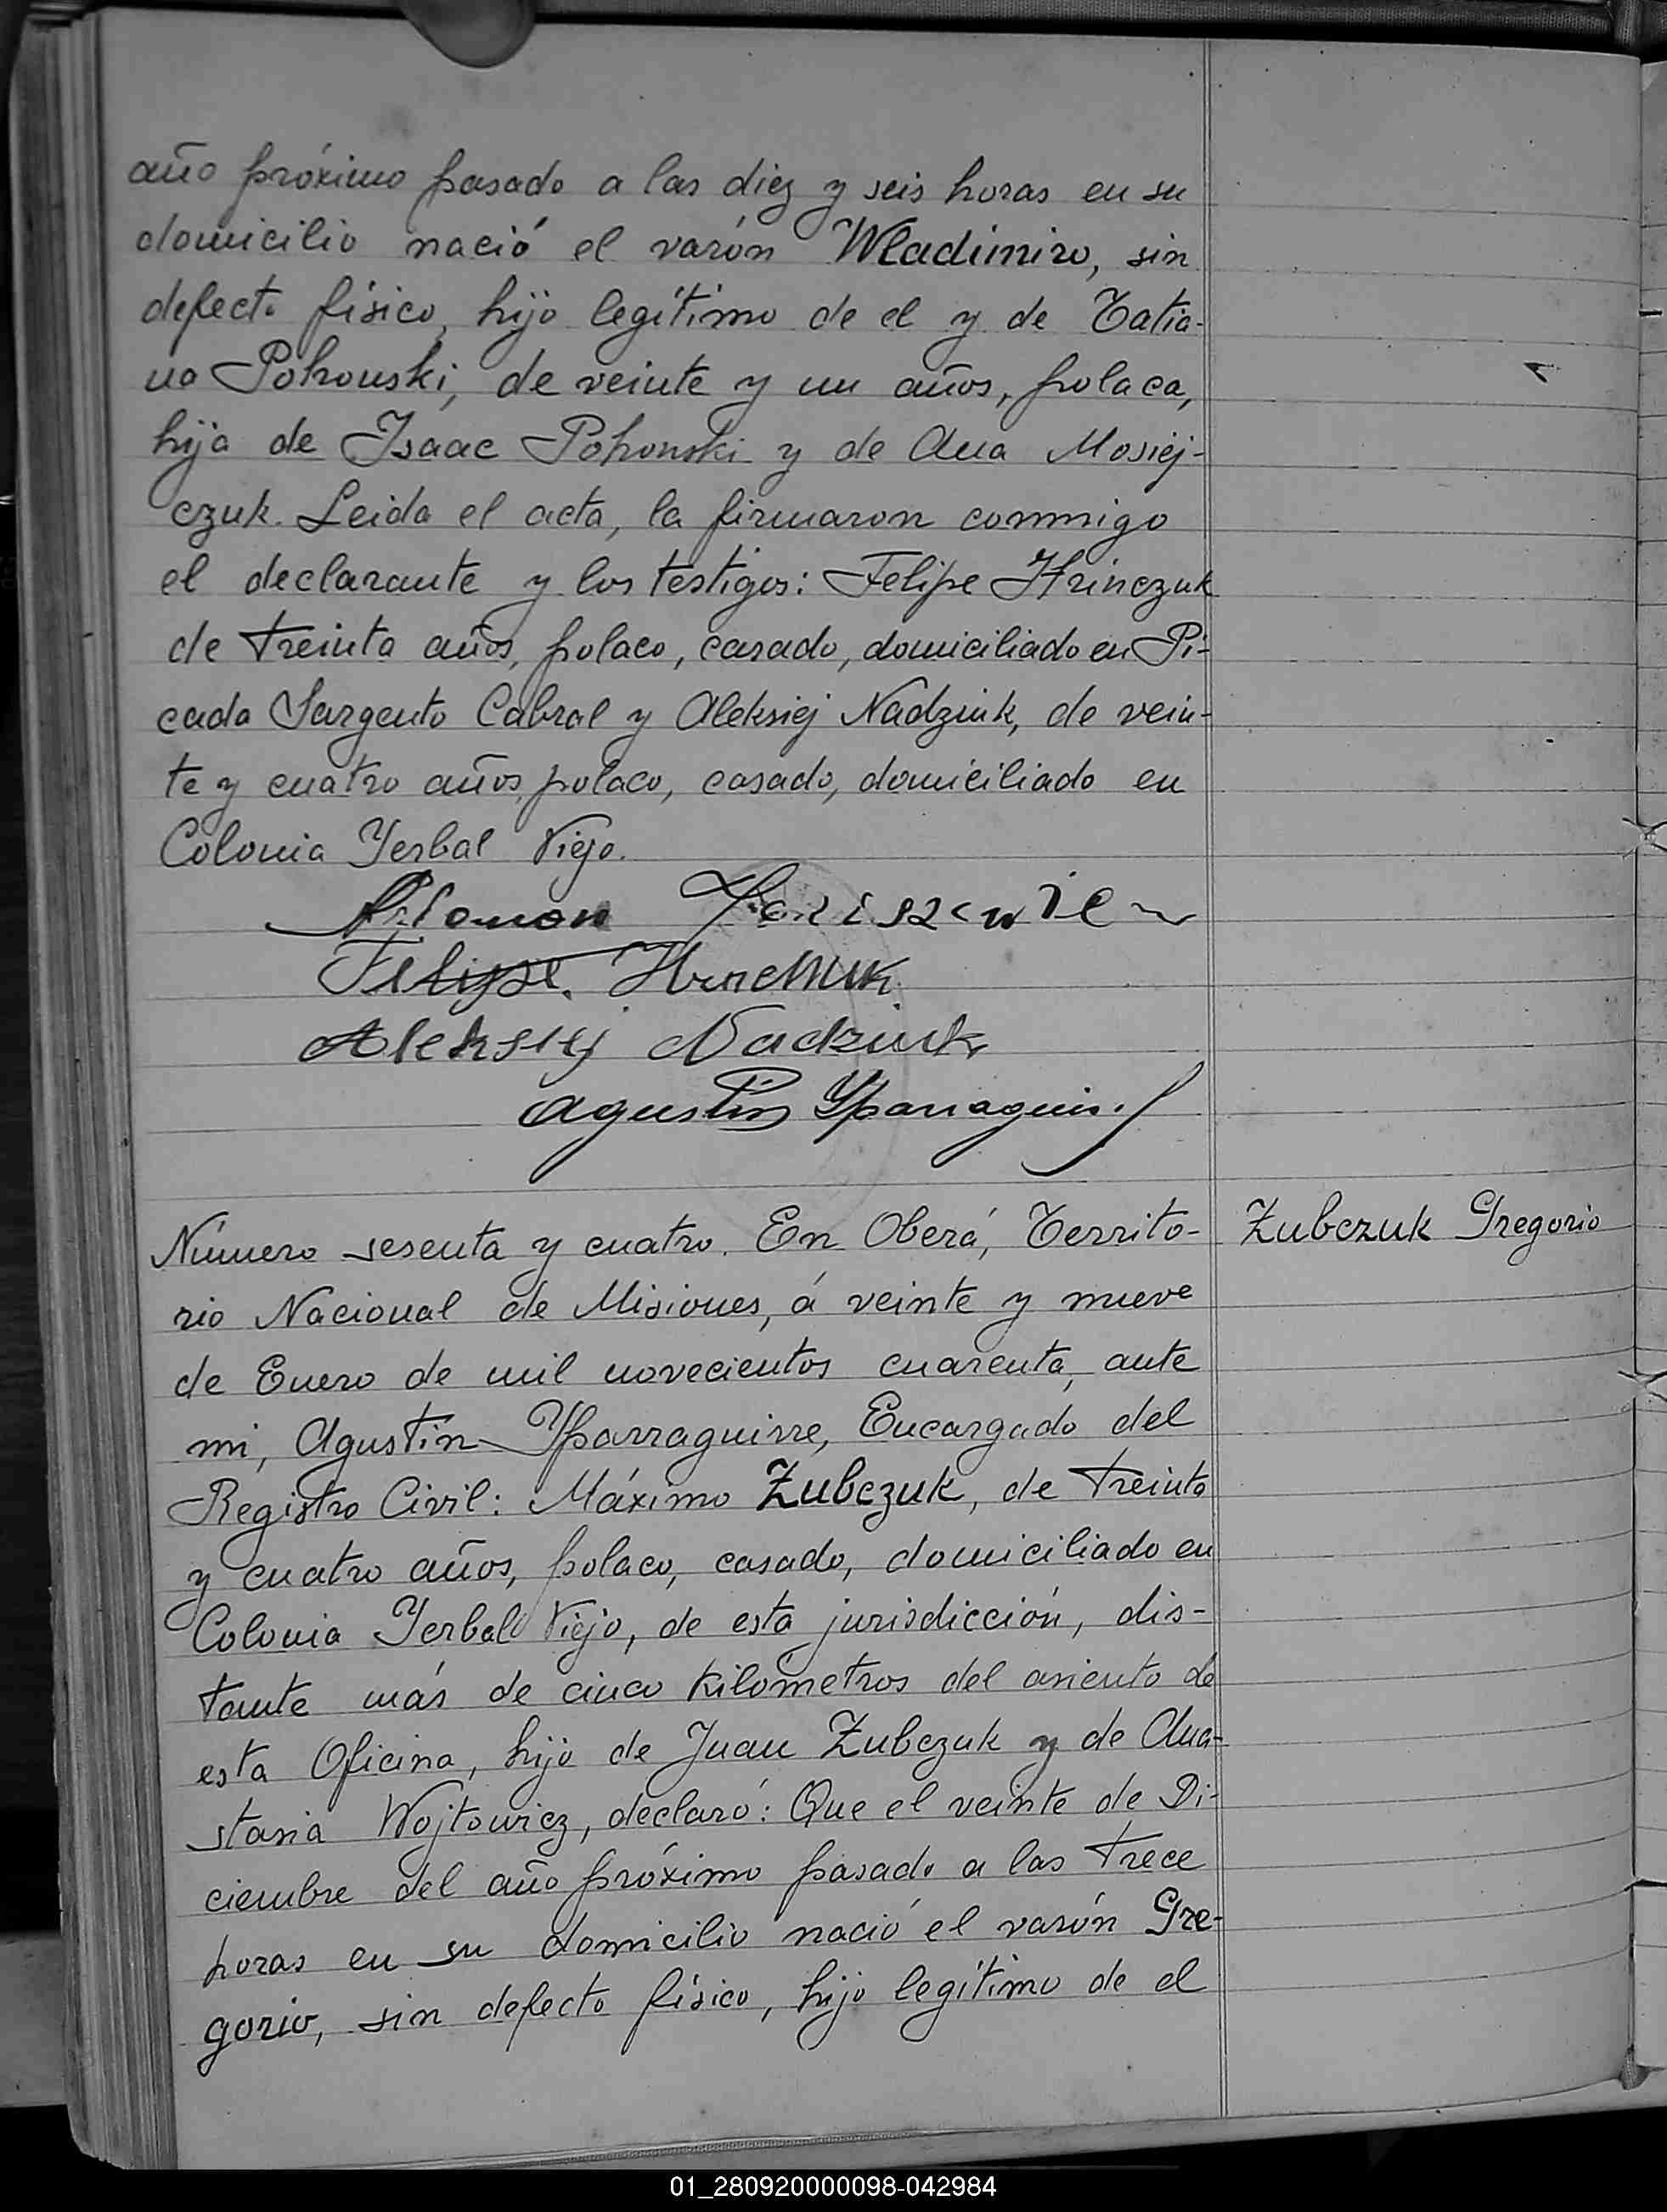 año próximo pasado a las diez y seis horas en su
domicilio nació el varón Wladimiro, sin
defecto físico, hijo legítimo de el y de Tatia-
na Pohonski, de veinte y un años, polaca,
hija de Isaac Pohonski y de Ana Mosiej-
czuk. Leida el acta, la firmaron conmigo
el declarante y los testigos: Felipe Hrinczuk
de treinta años, polaco, casado, domiciliado en Pi-
cada Sargento Cabral y Aleksiej Nadziuk, de vein-
te y cuatro años, polaco, casado, domiciliado en
Colonia Yerbal Viejo.
Felipe
Aleksiej Nadziuk
Agustín Yparraguirre
Número sesenta y cuatro. En Oberá, Territo-
Zubczuk Gregorio
rio Nacional de Misiones, á veinte y nueve
de Enero de mil novecientos cuarenta, ante
mi, Agustín Yparraguirre, Encargado del
Registro Civil: Máximo Zubczuk, de treinta
y cuatro años, polaco, casado, domiciliado en
Colonia Yerbal Viejo, de esta jurisdicción, dis-
tante más de cinco kilómetros del asiento de
esta Oficina, hijo de Juan Zubczuk y de Ana-
stasia Wojtowicz, declaró: Que el veinte de Di-
ciembre del año próximo pasado a las trece
horas en su domicilio nació el varón Gre-
gorio, sin defecto físico, hijo legítimo de el
01_280920000098-042984